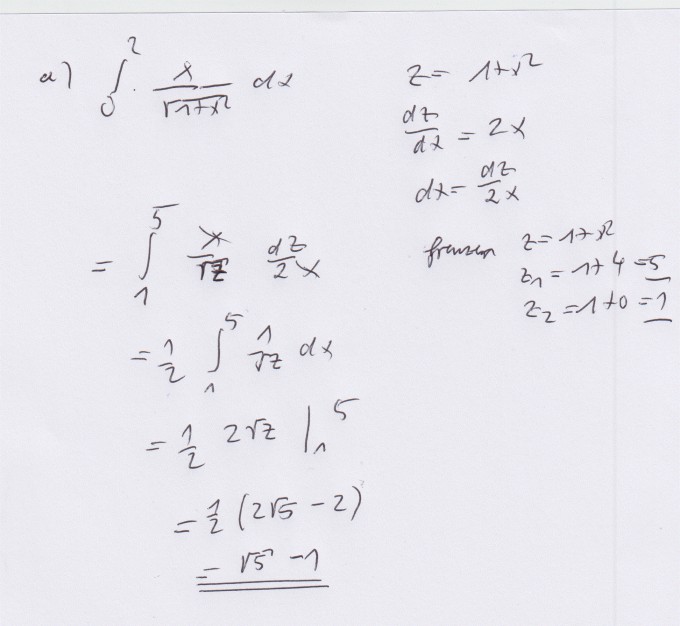 a) ∫₀² x/√(1+x²) dx
z = 1+x²
dz/dx = 2x
dx = dz/2x
= ∫₁⁵ x/√z dz/2x
z = 1+x²
z₁ = 1+4 = 5
z₂ = 1+0 = 1
= 1/2 ∫₁⁵ 1/√z dx
= 1/2 2√z |₁⁵
= 1/2 (2√5 - 2)
= √5 - 1